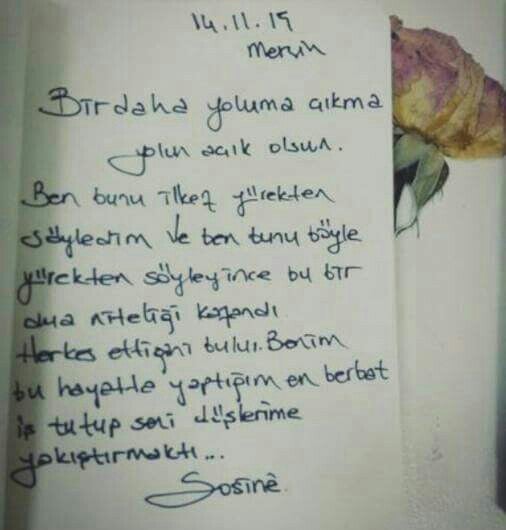 14.11.19
Mersin
Birdaha yoluma çıkma
yolun açık olsun.
Ben bunu ilkez yürekten
söyledim ve ben bunu böyle
yürekten söyleyince bu bir
dua niteliği kazandı
Herkes ettiğini bulur. Benim
bu hayatta yaptığım en berbat
iş tutup seni düşlerime
yakıştırmaktı...
Sosinê